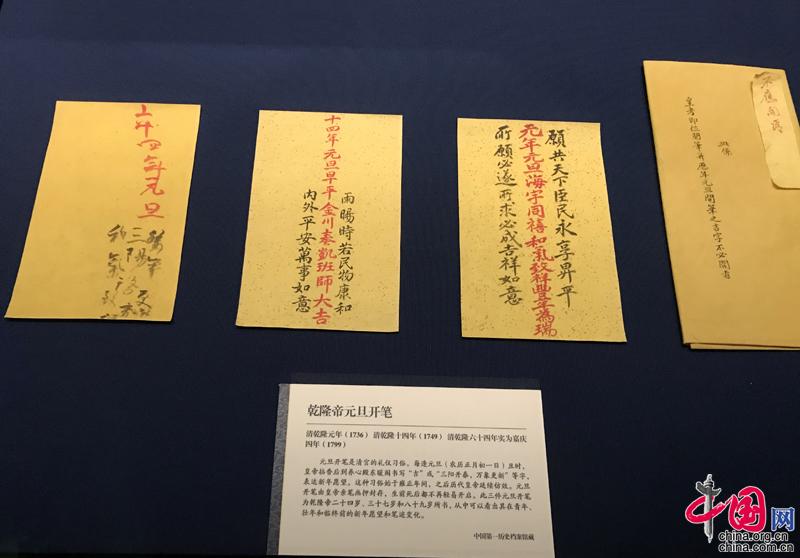 皇考即位開筆并歷年元旦開筆之吉字不必開看
願共天下臣民永享昇平
元年元旦海宇同禧和氣致祥豐年為瑞
所願必遂所求必成吉祥如意
雨暘時若民物康和
十四年元旦早平金川奏凱班師大吉
內外平安萬事如意
十四年元旦
乾隆帝元旦开笔
清乾隆元年（1736） 清乾隆十四年（1749） 清乾隆六十四年实为嘉庆
四年（1799）
元旦开笔是清宫的礼仪习俗。每逢元旦（农历正月初一日）丑时，
皇帝拈香后到养心殿东暖阁书写“吉”或“三阳开泰，万象更新”等字，
表达新年愿望。这种习俗始于雍正年间，之后历代皇帝延续仿效。元旦
开笔由皇帝亲笔画押封存，生前死后都不再轻易开启。此三件元旦开笔
为乾隆帝二十四岁、三十七岁和八十九岁所书，从中可以看出其在青年、
壮年和临终前的新年愿望和笔迹变化。
中国第一历史档案馆藏
中国网
china.org.cn
china.com.cn